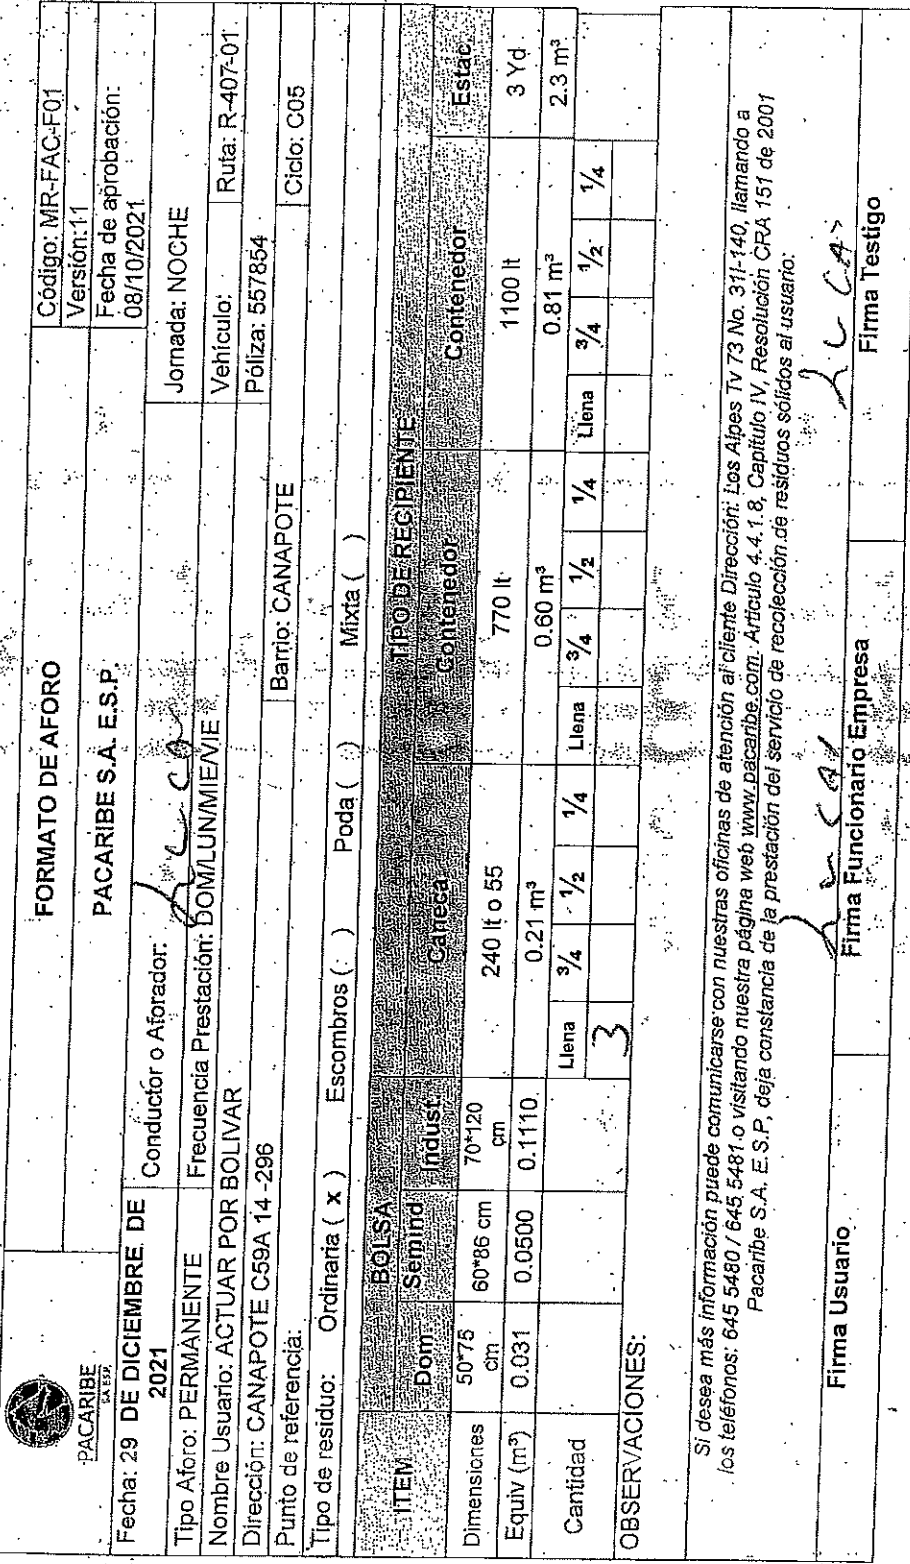 PACARIBE
S.A. E.S.P.
FORMATO DE AFORO
PACARIBE S.A. E.S.P.
Código: MR-FAC-F01
Versión:11
Fecha de aprobación:
08/10/2021
Fecha: 29 DE DICIEMBRE DE
2021
Conductor o Aforador:
Jornada: NOCHE
Tipo Aforo: PERMANENTE
Frecuencia Prestación: DOM/LUN/MIE/VIE
Vehículo:
Ruta: R-407-01
Nombre Usuario: ACTUAR POR BOLIVAR
Póliza: 557854
Dirección: CANAPOTE C59A 14 -296
Barrio: CANAPOTE
Ciclo: C05
Punto de referencia:
Tipo de residuo: Ordinaria ( x ) Escombros ( ) Poda ( ) Mixta ( )
TIPO DE RECIPIENTE
ITEM BOLSA Caneca Contenedor Contenedor Estac.
Dom Semind Indust.
Dimensiones 50*75 cm 60*86 cm 70*120 cm 240 lt o 55 770 lt 1100 lt 3 Yd
Equiv (m³) 0.031 0.0500 0.1110 0.21 m³ 0.60 m³ 0.81 m³ 2.3 m³
Cantidad Llena 3/4 1/2 1/4 Llena 3/4 1/2 1/4 Llena 3/4 1/2 1/4
3
OBSERVACIONES:
Si desea más información puede comunicarse con nuestras oficinas de atención al cliente Dirección: Los Alpes Tv 73 No. 31I-140, llamando a
los teléfonos: 645 5480 / 645 5481 o visitando nuestra página web www.pacaribe.com. Artículo 4.4.1.8, Capítulo IV, Resolución CRA 151 de 2001
Pacaribe S.A. E.S.P, deja constancia de la prestación del servicio de recolección de residuos sólidos al usuario:
Firma Usuario
Firma Funcionario Empresa
Firma Testigo